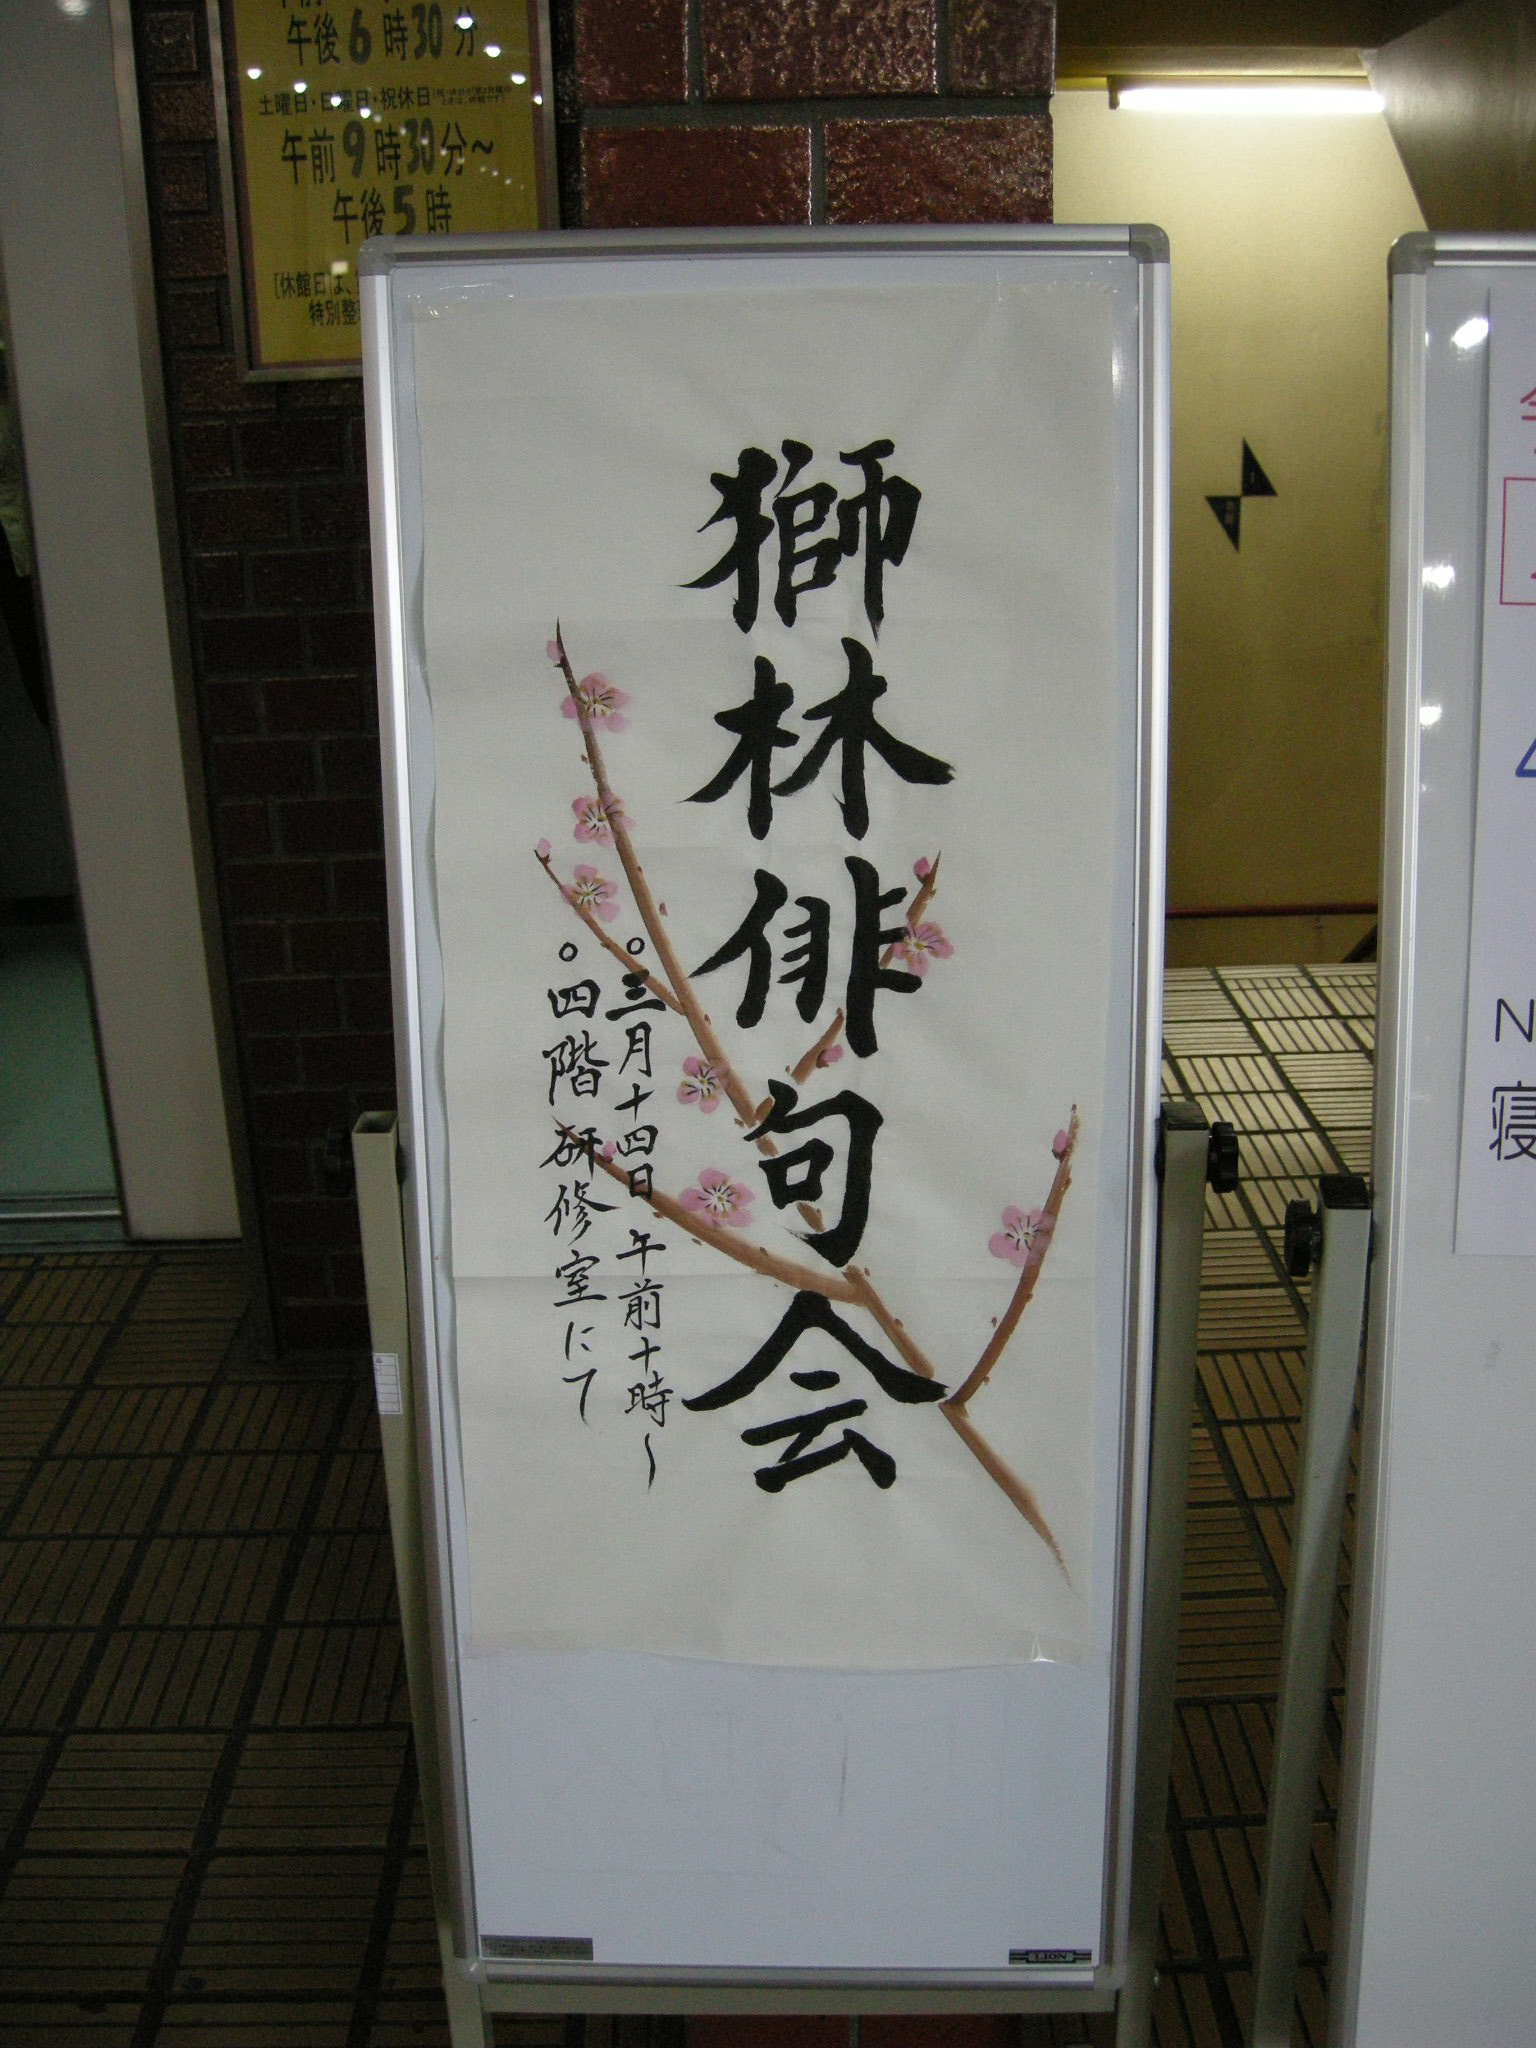 午後6時30分
土曜日・日曜日・祝休日
午前9時30分～
午後5時
[休館日は、
特別整
獅林俳句会
○三月十四日 午前十時～
○四階研修室にて
LION
N
寝